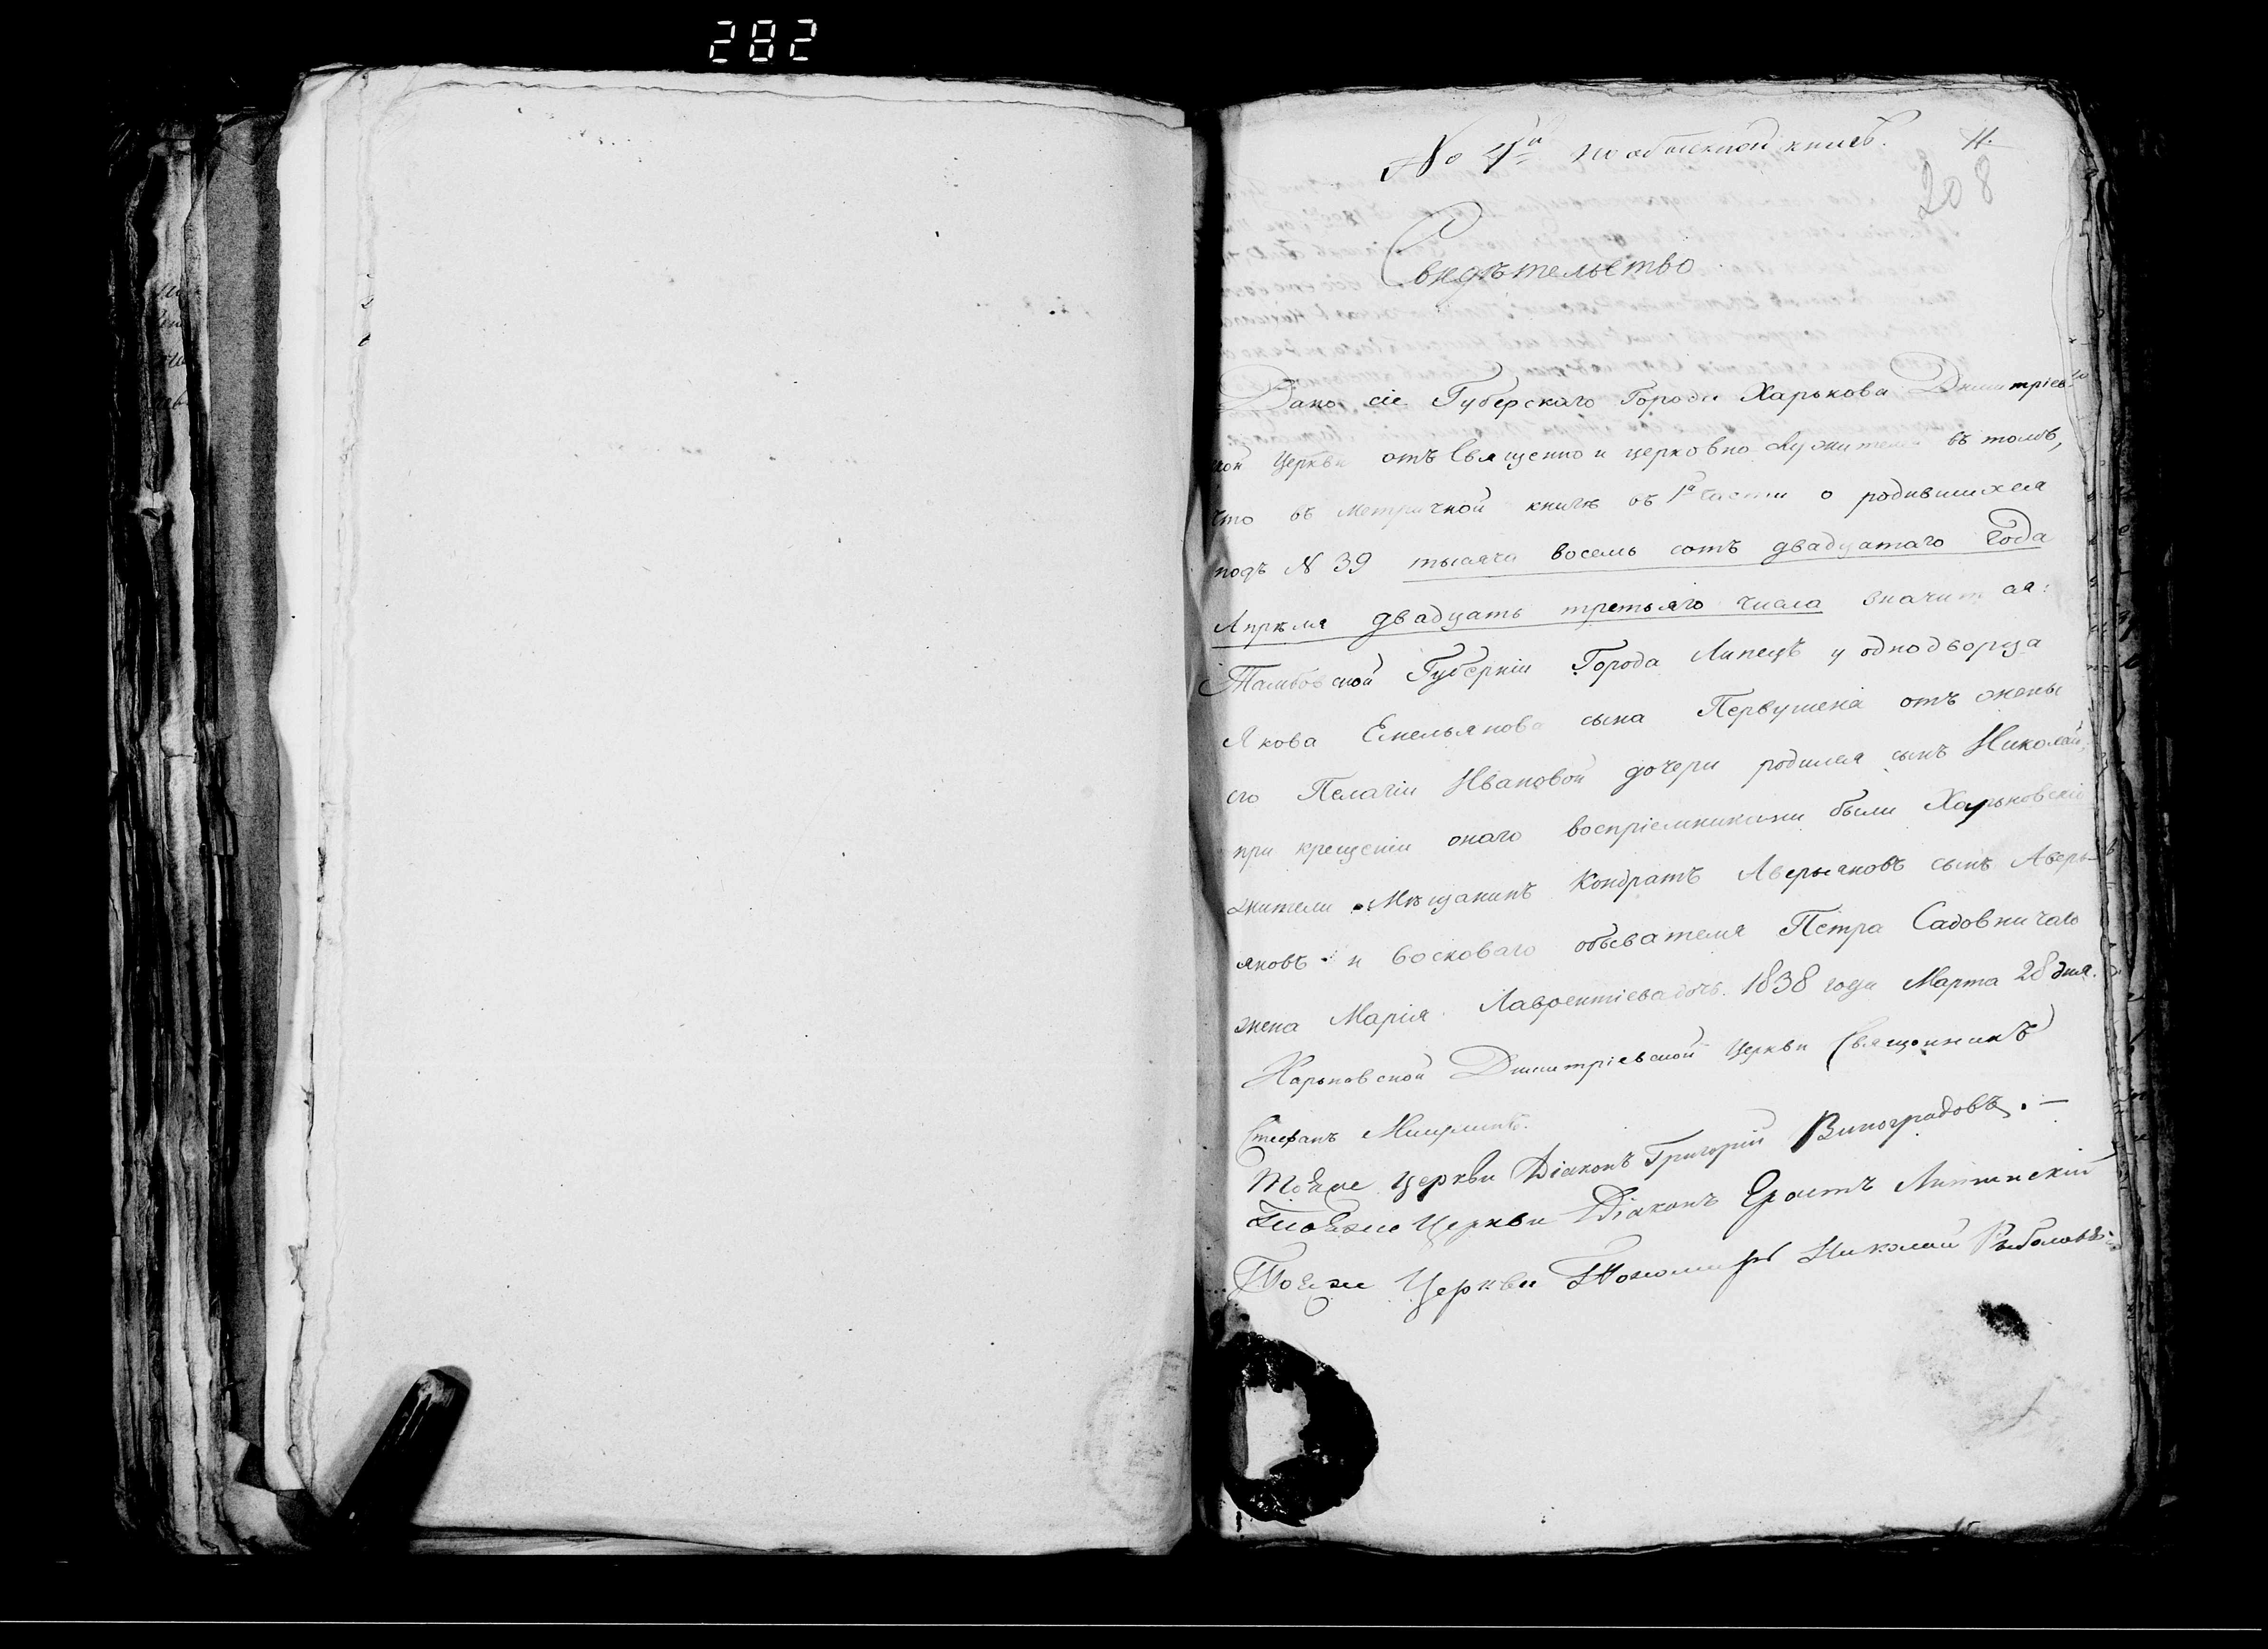 282
No 4й по обыскной книгѣ. 11.
208
Свидѣтельство
Дано сіе Губерскаго Города Харькова Дмитріев-
кой Церкви отъ Священно и церковно служителей въ томъ,
что въ метричной книгѣ въ 1й части о родившихся
подъ N 39 тысяча восемь сотъ двадцатаго Года
Апрѣля двадцать третьяго числа значится:
Тамбовской Губерніи Города Липецъ у однодворца
Якова Емельянова сына Первушена отъ жены
его Пелагіи Ивановой дочери родился сынъ Николай,
при крещеніи онаго воспріемниками были Харьковскіе
жители Мѣщанинъ Кондратъ Аверьяновъ сынъ Аверь-
яновъ и восковаго обывателя Петра Садовничаго
жена Марія Лаврентіева дочь. 1838 года Марта 28 дня.
Харьковской Дмитріевской Церкви Священникъ
Стефанъ
Тоежъ Церкви Діаконъ Григорій Виноградовъ. —
Тоежъ Церкви Діаконъ Ерастъ
Тоежъ Церкви Пономарь Николай Рыболовъ